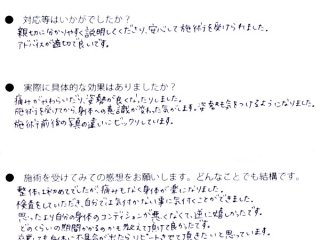 ● 対応等はいかがでしたか？
親切に分かりやすく説明してくださり、安心して施術を受けられました。
アドバイスが適切で良いです。
● 実際に具体的な効果はありましたか？
痛みがやわらいだり、姿勢が良くなったりしました。
施術を受けてから身体への意識が変わった気がします。姿勢も気をつけるようになりました。
施術前後の写真の違いにビックリしています。
● 施術を受けてみての感想をお願いします。どんなことでも結構です。
整体は初めてでしたが、痛みもなく身体が楽になりました。
検査をしていただき、自分でも気がつかない事に気付くことができました。
思ったより自分の身体のコンディションが悪くなくて、逆に嬉しかったです。
どのくらいの期間がかかるかも教えて頂けて良かったです。
不具合が出たらリピートさせて頂きたいと思っています。